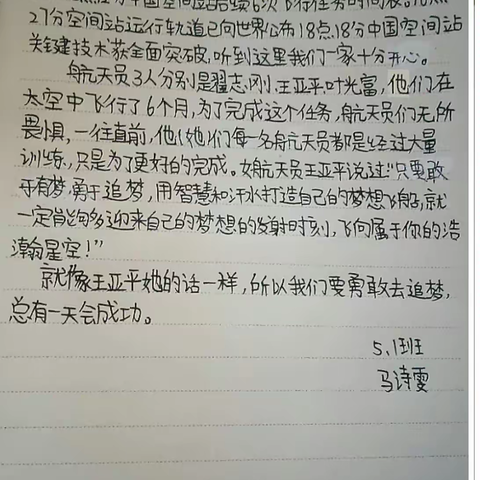 中国空间站后续6次飞行任务时间表
27分空间站运行轨道已向世界公布18点18分中国空间站
关键技术获全面突破,听到这里我们一家十分开心。
航天员3人分别是翟志刚.王亚平.叶光富,他们在
太空中飞行了6个月,为了完成这个任务,航天员们无所
畏惧,一往直前,他(她)们每一名航天员都是经过大量
训练,只是为了更好的完成。女航天员王亚平说过:"只要敢
于有梦,勇于追梦,用智慧和汗水打造自己的梦想飞船,就
一定能够多迎来自己的梦想的发射时刻,飞向属于你的浩
瀚星空!"
就像王亚平她的话一样,所以我们要勇敢去追梦,
总有一天会成功。
5.1班
马诗雯